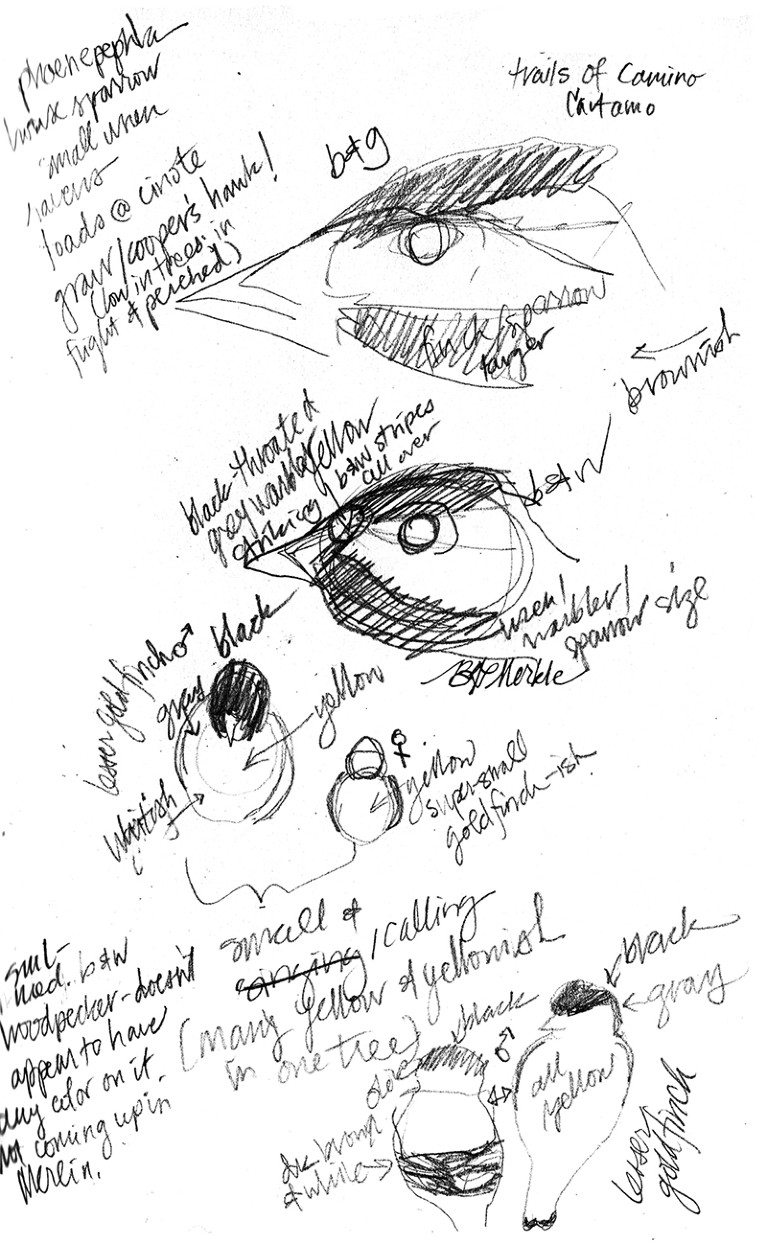 trails of Camino
Cartamo
phoenepephla
sparrow
small wren
ravens
loads @ cinote
/cooper's hawk!
(low in trees. in
flight & perched)
b&g
finch/sparrow
larger
brownish
black-throated
grey warbler yellow
striking b&w stripes
all over
b&w
wren/
warbler/
sparrow size
BG Merkle
lesser goldfinch ♂
black
gray
yellow
whitish
♀
yellow
super small
goldfinch-ish
small &
singing/calling
(many yellow & yellowish
in one tree)
sml-
med. b&w
woodpecker-doesn't
appear to have
any color on it.
not coming up in
Merlin.
black
♂
black
gray
all
yellow
lesser
goldfinch
dk brown
& white